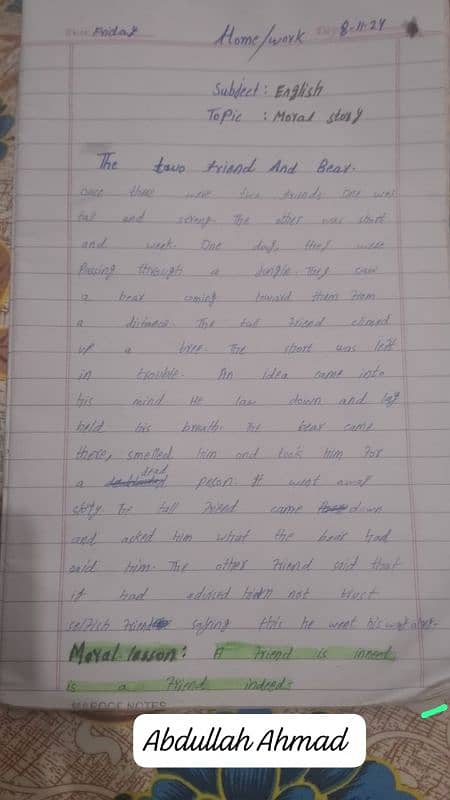 Friday Home/work 8-11-24
Subject: English
Topic : Moral story
The two friend And Bear.
once there were two friends One was
tall and strong. The other was short
and week. One day, they were
Passing through a Jungle. They saw
a bear coming toward them from
a distance. The tall friend climed
up a tree. The short was left
in trouble. An idea came into
his mind He law down and lay
held his breath. The bear came
there, smelled him and took him for
a dead peson. It went away
The tall friend came down
and asked him what the bear had
said him. The other friend said that
it had adised him not trust
selfish friend saying this he went his way alone.
Moral lesson: A friend is inneed,
is a friend indeed.
Abdullah Ahmad